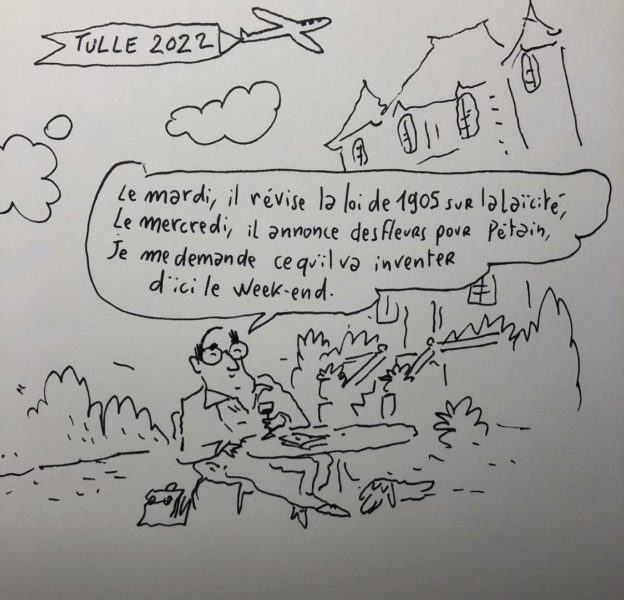 TULLE 2022
Le mardi, il révise la loi de 1905 sur la laïcité,
Le mercredi, il annonce des fleurs pour Pétain,
Je me demande ce qu'il va inventer
d'ici le week-end.